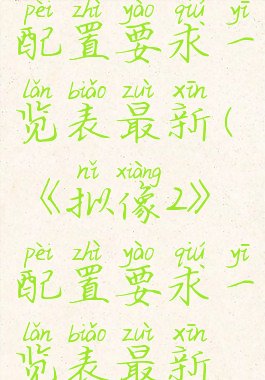 pèi zhì yào qiú yī
配置要求一
lǎn biǎo zuì xīn
览表最新(
nǐ xiàng
《拟像2》
pèi zhì yào qiú yī
配置要求一
lǎn biǎo zuì xīn
览表最新